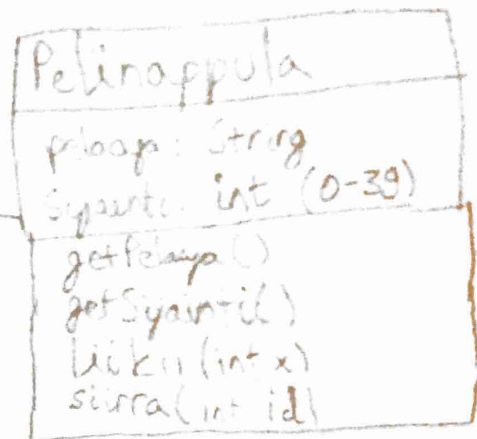 Pelinappula
pelaaja: String
Sijainti: int (0-39)
getPelaaja()
getSijainti()
liiku(int x)
siirra(int id)